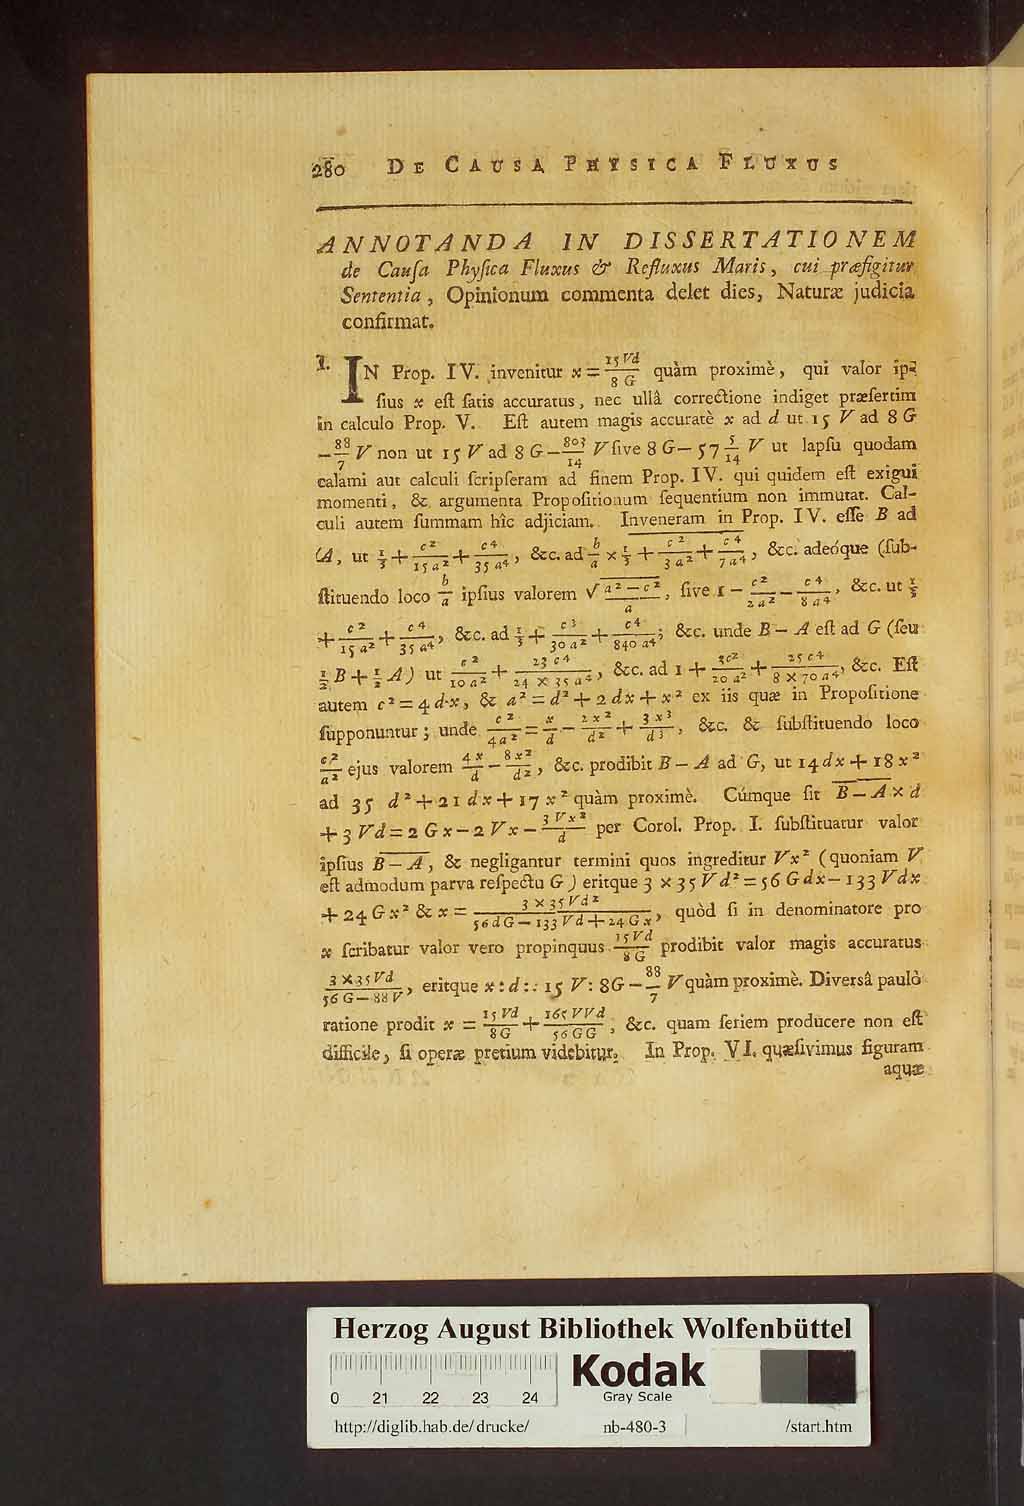 280 DE CAUSA PHYSICA FLUXUS
ANNOTANDA IN DISSERTATIONEM
de Cauſa Phyſica Fluxus & Refluxus Maris, cui præfigitur
Sententia, Opinionum commenta delet dies, Naturæ judicia
confirmat.
I. IN Prop. IV. invenitur x = 15Vd/8G quàm proximè, qui valor ip-
ſius x eſt ſatis accuratus, nec ullâ correctione indiget præſertim
in calculo Prop. V. Eſt autem magis accuratè x ad d ut 15 V ad 8 G
– 88/7 V non ut 15 V ad 8 G – 803/14 V ſive 8 G – 57 5/14 V ut lapſu quodam
calami aut calculi ſcripſeram ad finem Prop. IV. qui quidem eſt exigui
momenti, & argumenta Propoſitionum ſequentium non immutat. Cal-
culi autem ſummam hîc adjiciam. Inveneram in Prop. IV. eſſe B ad
A, ut 1/3 + c²/15a² + c⁴/35a⁴, &c. ad b/a × 1/3 + c²/3a² + c⁴/7a⁴, &c. adeóque (ſub-
ſtituendo loco b/a ipſius valorem √a² – c²/a, ſive 1 – c²/2a² – c⁴/8a⁴, &c. ut 1/3
+ c²/15a² + c⁴/35a⁴, &c. ad 1/3 + c³/30a² + c⁴/840a⁴; &c. unde B – A eſt ad G (ſeu
1/2 B + 1/2 A) ut c²/10a² + 23c⁴/24 × 35a⁴, &c. ad 1 + 3c²/20a² + 25c⁴/8 × 70a⁴, &c. Eſt
autem c² = 4 d x, & a² = d² + 2 dx + x² ex iis quæ in Propoſitione
ſupponuntur; unde c²/4a² = x/d – 2x²/d² + 3x³/d³, &c. & ſubſtituendo loco
c²/a² ejus valorem 4x/d – 8x²/d², &c. prodibit B – A ad G, ut 14 dx + 18 x²
ad 35 d² + 21 dx + 17 x² quàm proximè. Cúmque ſit B – A × d
+ 3 Vd = 2 Gx – 2 Vx – 3Vx²/d per Corol. Prop. I. ſubſtituatur valor
ipſius B – A, & negligantur termini quos ingreditur Vx² (quoniam V
eſt admodum parva reſpectu G) eritque 3 × 35 Vd² = 56 Gdx – 133 Vdx
+ 24 Gx² & x = 3 × 35Vd²/56dG – 133Vd + 24Gx, quòd ſi in denominatore pro
x ſcribatur valor vero propinquus 15Vd/8G prodibit valor magis accuratus
3 × 35Vd/56G – 88V, eritque x : d :: 15 V : 8G – 88/7 V quàm proximè. Diversâ paulò
ratione prodit x = 15Vd/8G + 165VVd/56GG, &c. quam ſeriem producere non eſt
difficile, ſi operæ pretium videbitur. In Prop. VI. quæſivimus figuram
aquæ
Herzog August Bibliothek Wolfenbüttel
0 21 22 23 24
Kodak
Gray Scale
http://diglib.hab.de/drucke/ nb-480-3 /start.htm